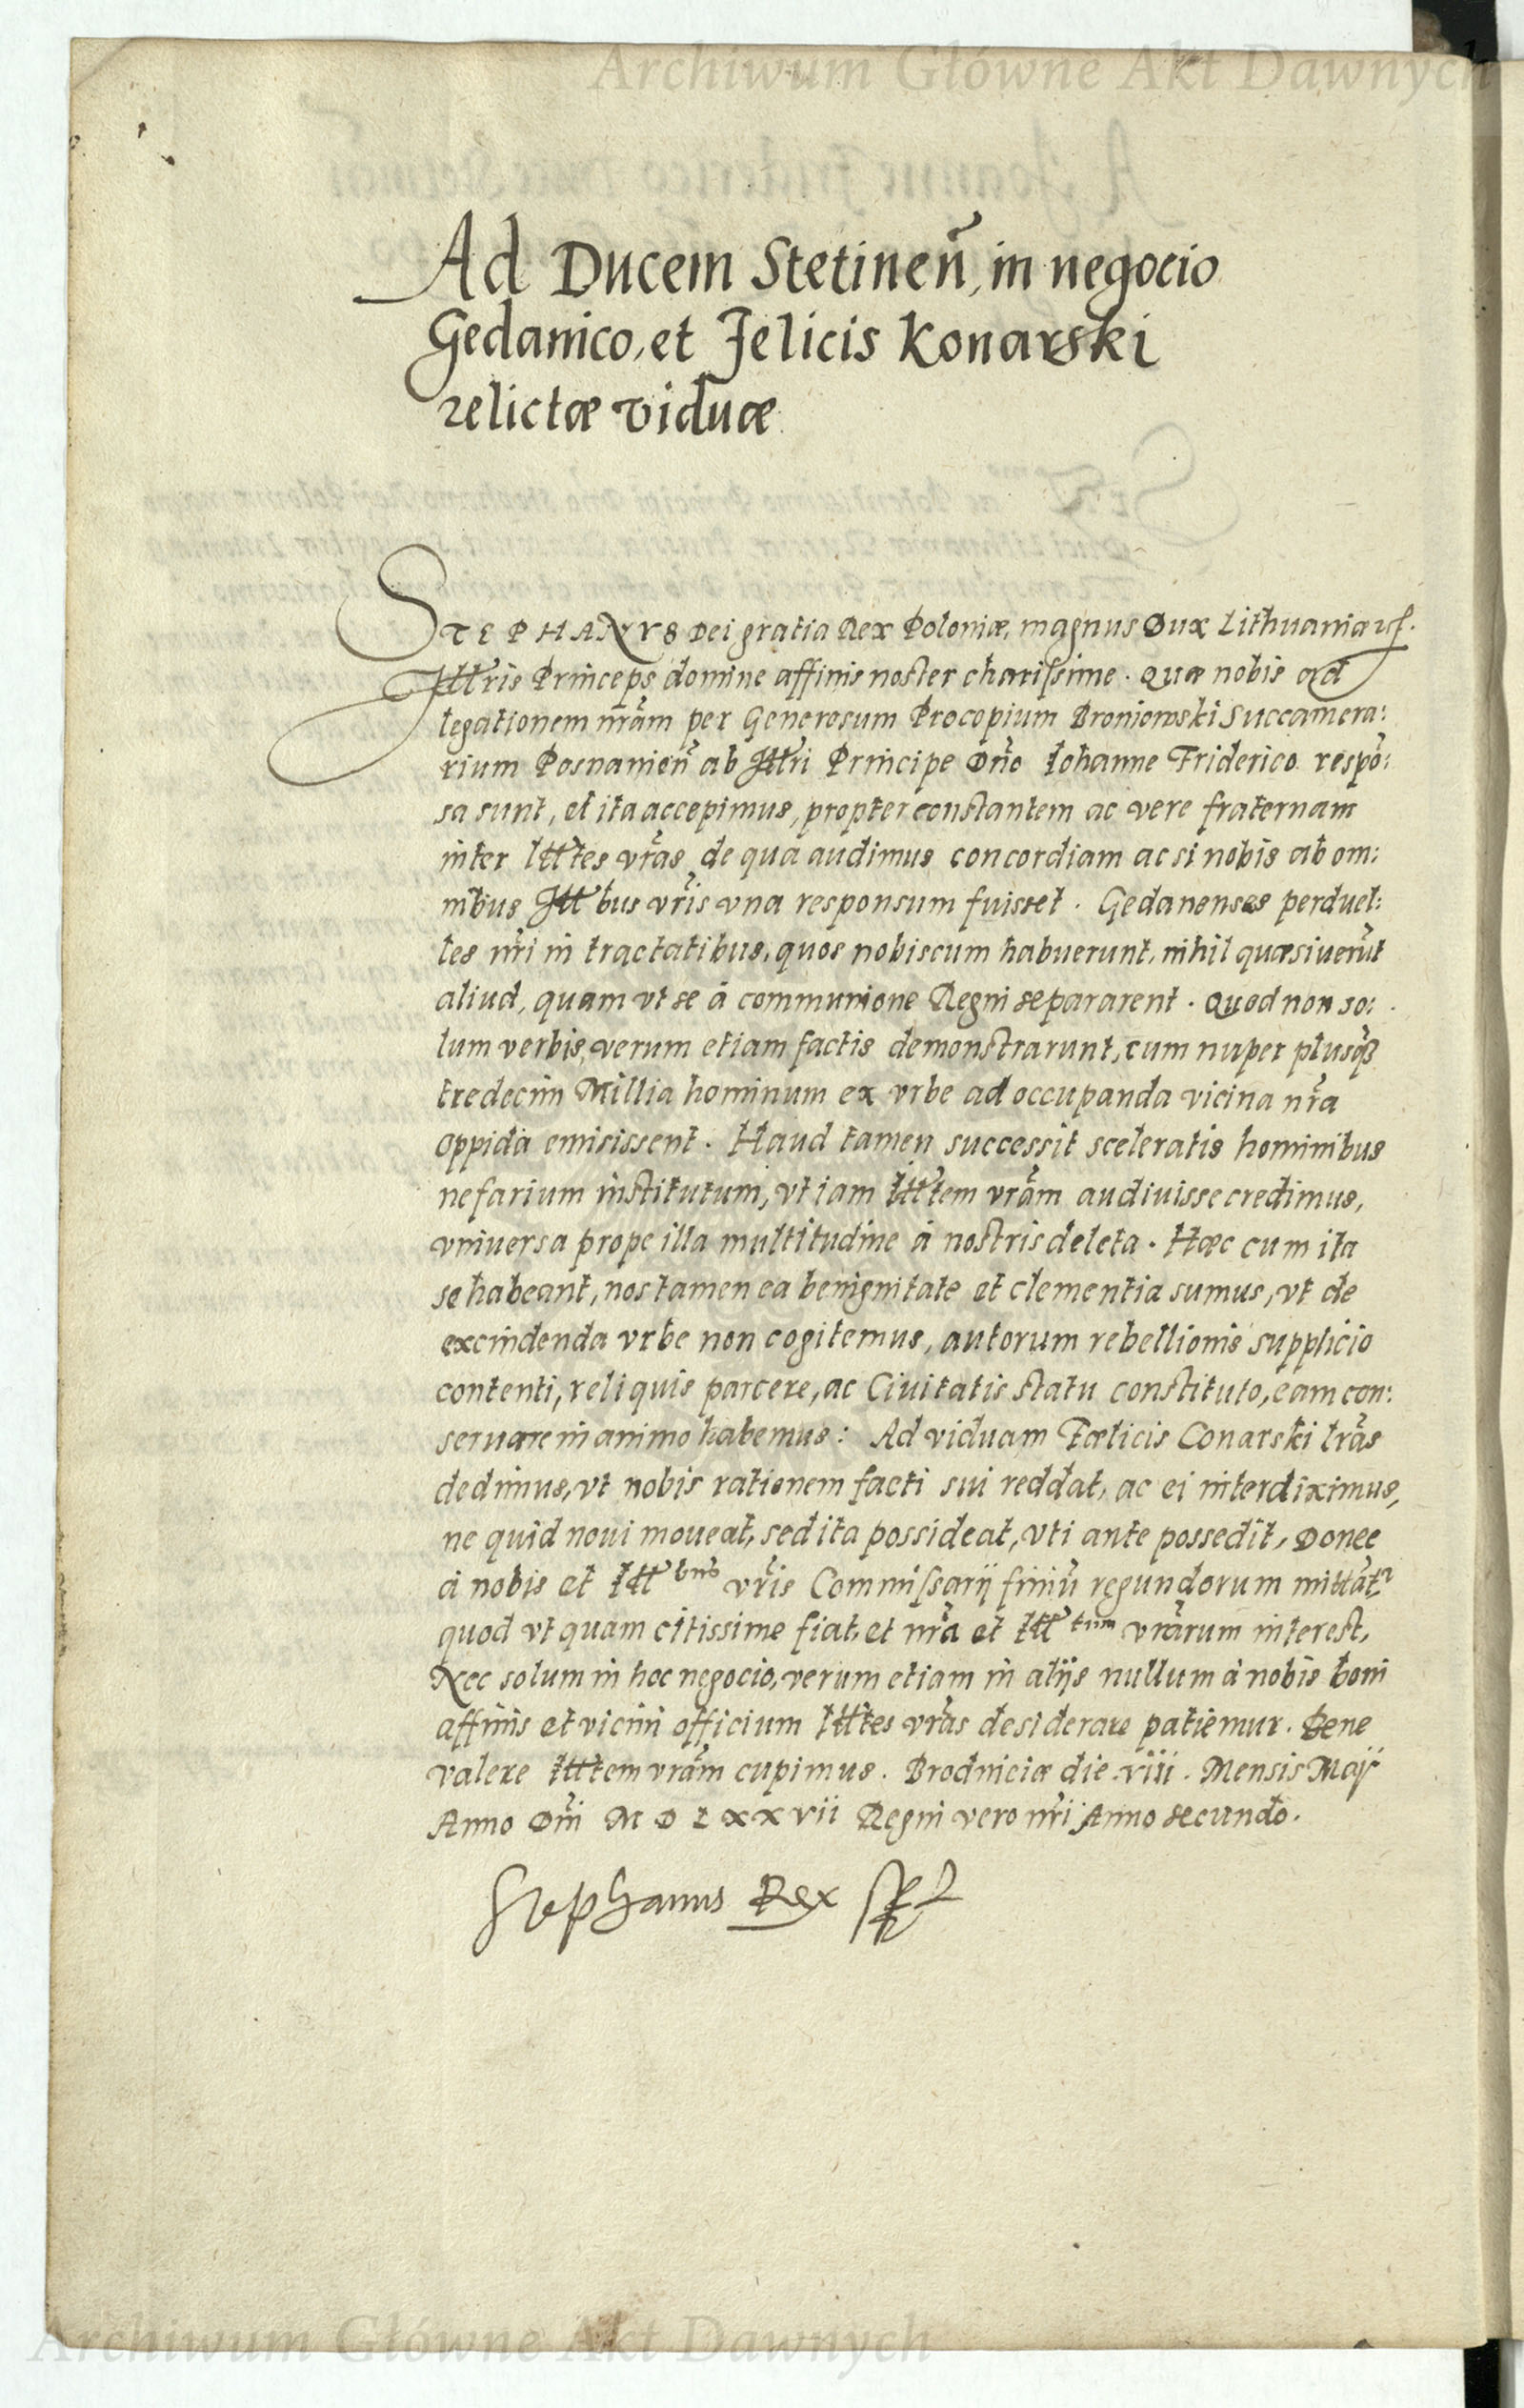 Archiwum Główne Akt Dawnych
Ad Ducem Stetinen̄, in negocio
Gedanico, et Felicis Konarski
relictæ viduæ
STEPHANVS Dei gratia Rex Poloniæ, magnus Dux Lithuaniæ
Illris Princeps domine affinis noster charissime. Quæ nobis ad
legationem nr̃am per Generosum Procopium Broniowski Succamera:
rium Posnanien̄ ab Illri Principe Dño Iohanne Friderico respõ:
sa sunt, et ita accepimus, propter constantem ac vere fraternam
inter Illtes vr̃as, de qua audimus concordiam ac si nobis ab om:
nibus Illbus vr̃is vna responsum fuisset. Gedanenses perduel:
les nr̃i in tractatibus, quos nobiscum habuerunt, nihil quæsiuerũt
aliud, quam vt se à communione Regni separarent. Quod non so:
lum verbis, verum etiam factis demonstrarunt, cum nuper plusq̃
tredecim Millia hominum ex vrbe ad occupanda vicina nr̃a
oppida emisissent. Haud tamen successit sceleratis hominibus
nefarium institutum, vt iam Illtem vr̃am audiuisse credimus,
vniuersa prope illa multitudine à nostris deleta. Hæc cum ita
se habeant, nos tamen ea benignitate et clementia sumus, vt de
excindenda vrbe non cogitemus, autorum rebellionis supplicio
contenti, reliquis parcere, ac Ciuitatis statu constituto, eam con:
seruare in animo habemus: Ad viduam Fœlicis Conarski lr̃as
dedimus, vt nobis rationem facti sui reddat, ac ei interdiximus,
ne quid noui moueat, sed ita possideat, vti ante possedit, Donec
à nobis et Ill^bus vr̃is Commissarij finiũ regundorum mittãt^r
quod vt quam citissime fiat, et nr̃a et Ill^tum vr̃arum interest,
Nec solum in hoc negocio, verum etiam in alijs nullum à nobis boni
affinis et vicini officium Illtes vr̃as desiderare patiemur. Bene
valere Illtem vr̃am cupimus. Brodniciæ die viii. Mensis Maij
Anno Dñi M D L x x vii Regni vero nr̃i Anno secundo.
Stephanus Rex
Archiwum Główne Akt Dawnych